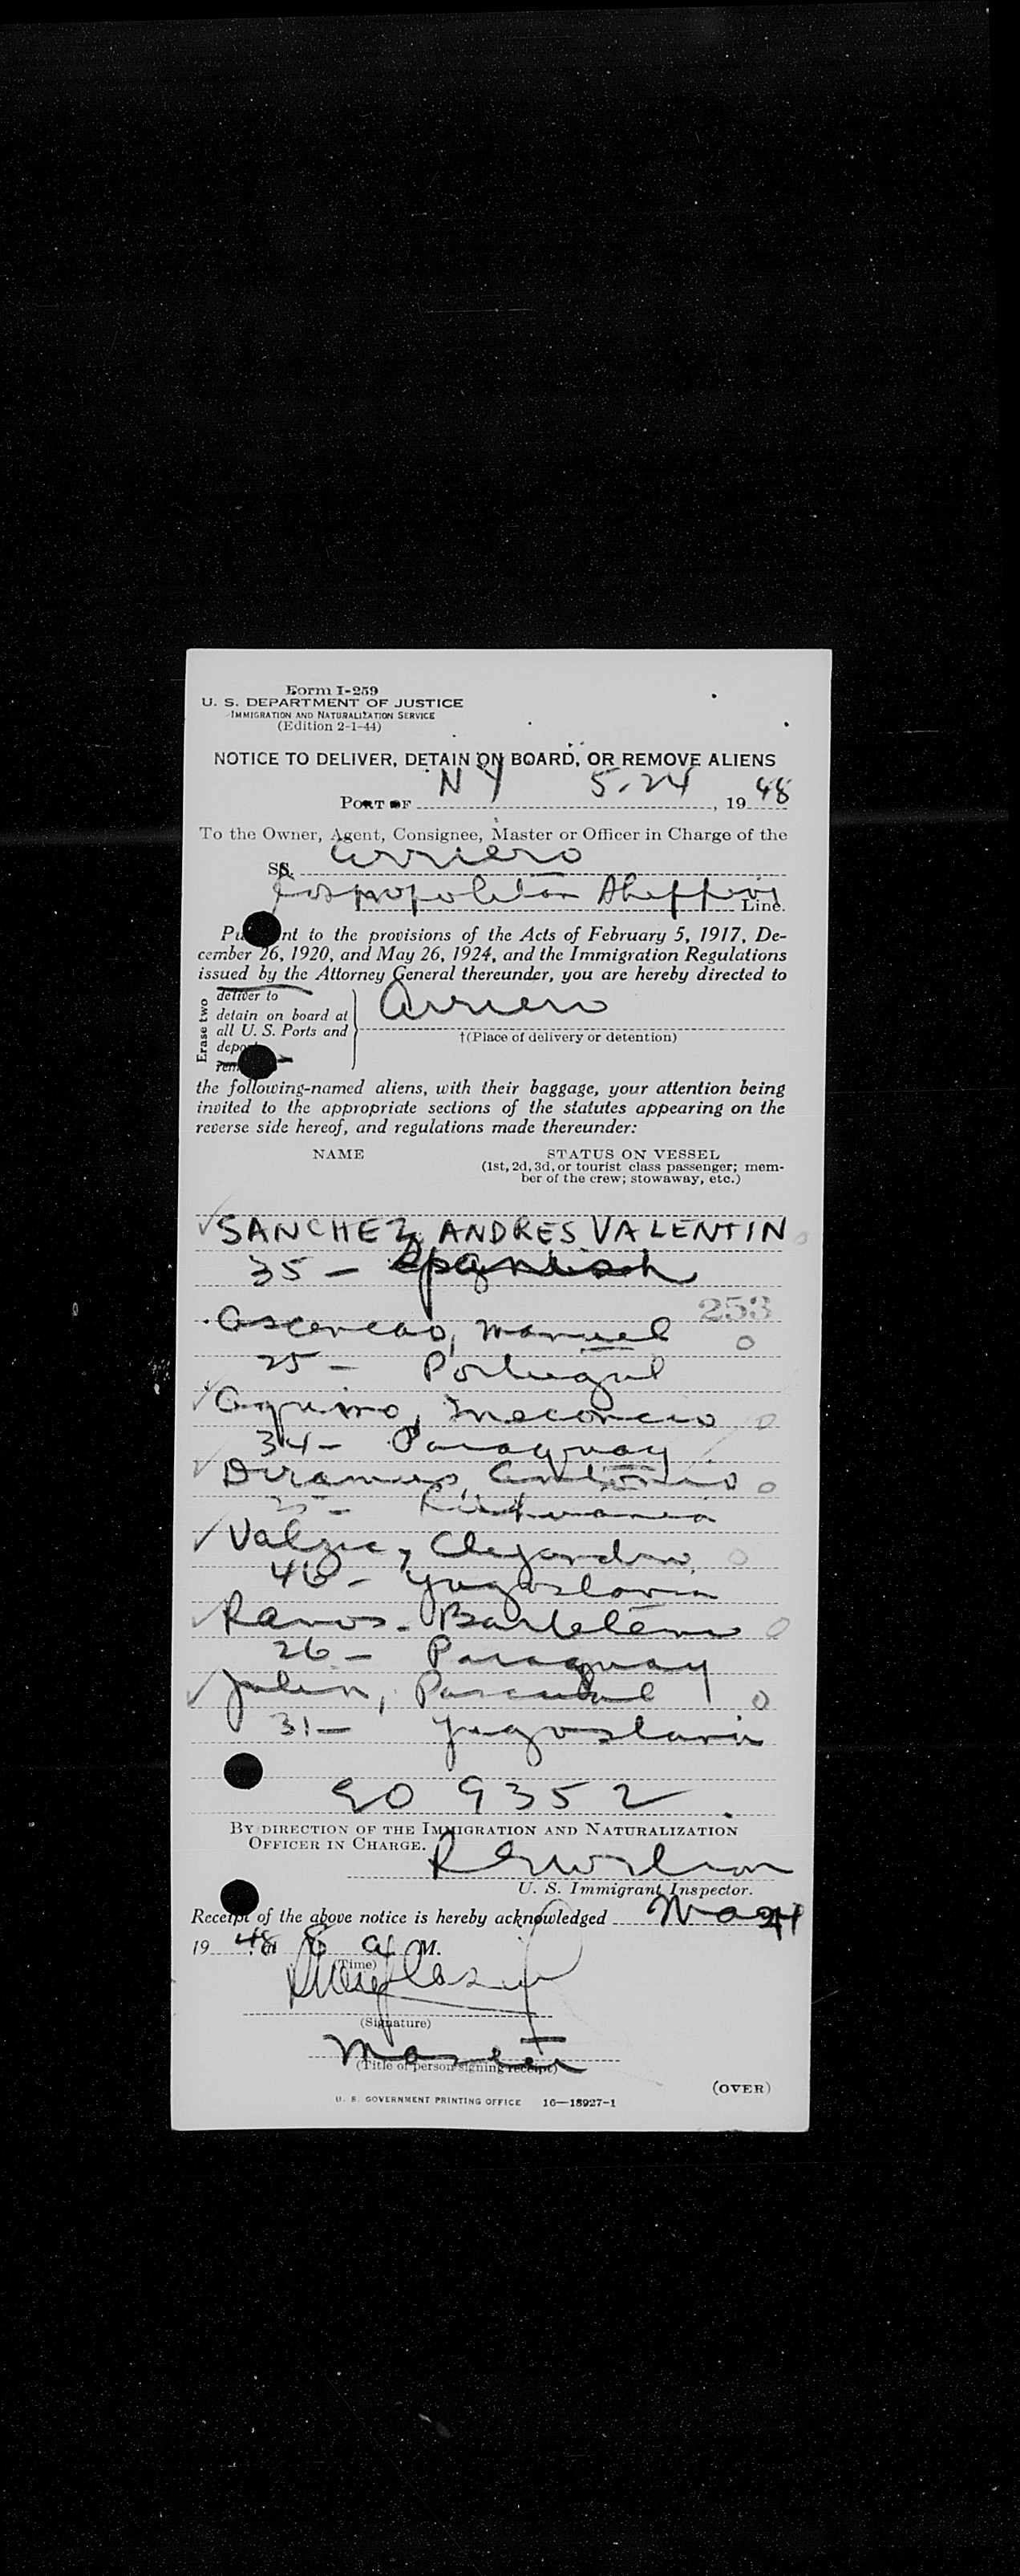 Form I-259
U. S. DEPARTMENT OF JUSTICE
IMMIGRATION AND NATURALIZATION SERVICE
(Edition 2-1-44)
NOTICE TO DELIVER, DETAIN ON BOARD, OR REMOVE ALIENS
PORT OF N Y 5-24, 1948
To the Owner, Agent, Consignee, Master or Officer in Charge of the
SS. Arriero
Line.
nt to the provisions of the Acts of February 5, 1917, De-
cember 26, 1920, and May 26, 1924, and the Immigration Regulations
issued by the Attorney General thereunder, you are hereby directed to
Erase two
deliver to
detain on board at
all U. S. Ports and
Arriero
†(Place of delivery or detention)
the following-named aliens, with their baggage, your attention being
invited to the appropriate sections of the statutes appearing on the
reverse side hereof, and regulations made thereunder:
NAME STATUS ON VESSEL
(1st, 2d, 3d, or tourist class passenger; mem-
ber of the crew; stowaway, etc.)
SANCHEZ, ANDRES VALENTIN
35 - Spanish
253
Ascencao, Manuel
25 - Portugal
Aquino,
34 - Paraguay
Antonio
Lithuania
40 - Yugoslavia
Ramos - Bartelemi
26 - Paraguay
Pascual
31 - Yugoslavia
9352
BY DIRECTION OF THE IMMIGRATION AND NATURALIZATION
OFFICER IN CHARGE.
U. S. Immigrant Inspector.
Receipt of the above notice is hereby acknowledged May 24
1948 8 A M.
(Time)
(Signature)
Master
(Title of person signing receipt)
(OVER)
U. S. GOVERNMENT PRINTING OFFICE 16—18927-1